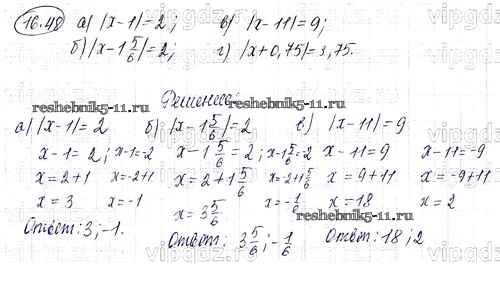 16.48 а) |x-1|=2; в) |x-11|=9;
б) |x-1 5/6|=2; г) |x+0,75|=3,75.
Решение:
reshebnik5-11.ru
reshebnik5-11.ru
а) |x-1|=2 б) |x-1 5/6|=2 в) |x-11|=9
x-1=2; x-1=-2 x-1 5/6=2; x-1 5/6=-2 x-11=9 x-11=-9
x=2+1 x=-2+1 x=2+1 5/6 x=-2+1 5/6 x=9+11 x=-9+11
x=3 x=-1 x=3 5/6 x=-1/6 x=18 x=2
reshebnik5-11.ru
Ответ: 3; -1. Ответ: 3 5/6; -1/6 Ответ: 18; 2
vipgdz.ru